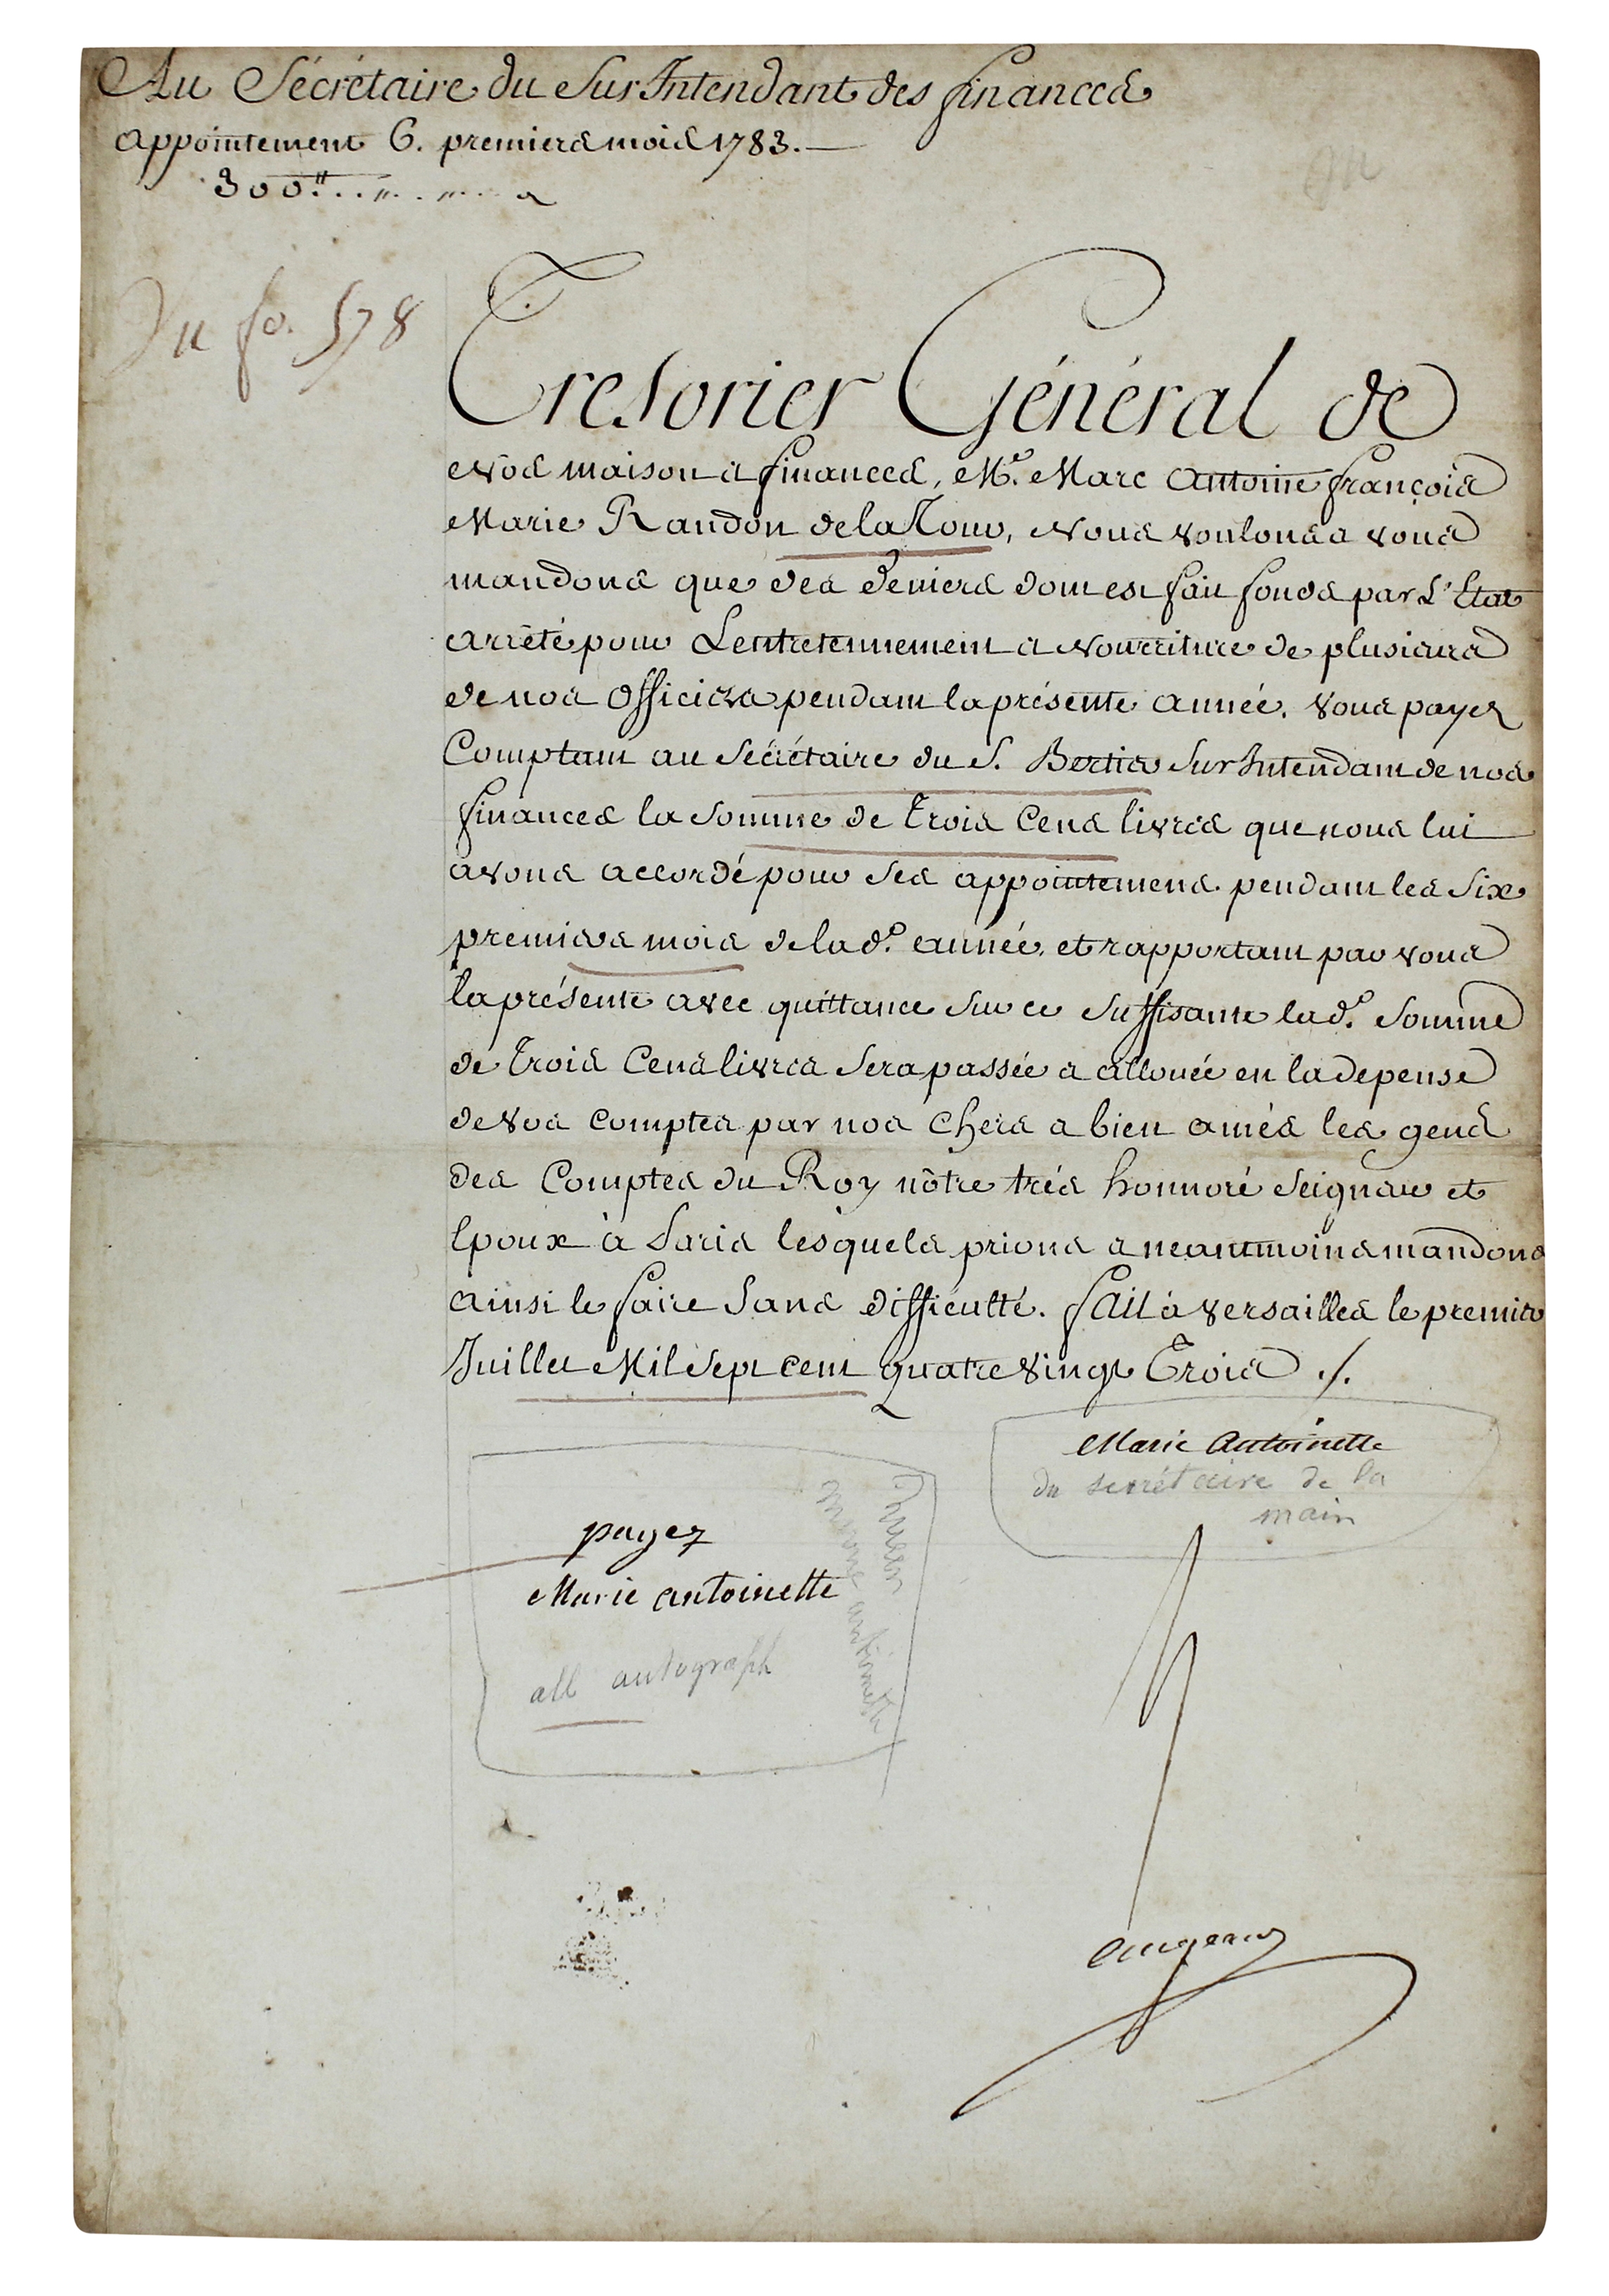 Au Sécrétaire du SurIntendant des finances
appointement 6. premiers mois 1783.
300ᵗᵗ
Vu fo. 578
Tresorier Général de
Nos maison et finances, Mᵉ. Marc Antoine françois
Marie Randon de la Tour, Nous voulons et vous
mandons que des deniers dont est fait fonds par L'Etat
arrêté pour Lentretennement et Nourriture de plusieurs
de nos officiers pendant la présente année. vous payez
Comptant au Sécrétaire du S. Bertier SurIntendant de nos
finances la Somme de Trois Cens livres que nous lui
avons accordé pour Ses appointemens pendant les Six
premiers mois de lad.ᵉ année, et rapportant par vous
la présente avec quittance Sur ce Suffisante lad.ᵉ Somme
de Trois Cens livres Sera passée et allouée en la depense
de vos comptes par nos chers et bien amés les gens
des Comptes du Roy nôtre trés honnoré Seigneur et
Epoux à Paris lesquels prions et neantmoins mandons
ainsi le faire Sans difficulté. fait à versailles le premier
Juillet Mil Sept cent quatre vingt Trois ./.
Marie Antoinette
du secrétaire de la
main
payez
Marie antoinette
all autograph
Queen
Marie antoinette
augeard